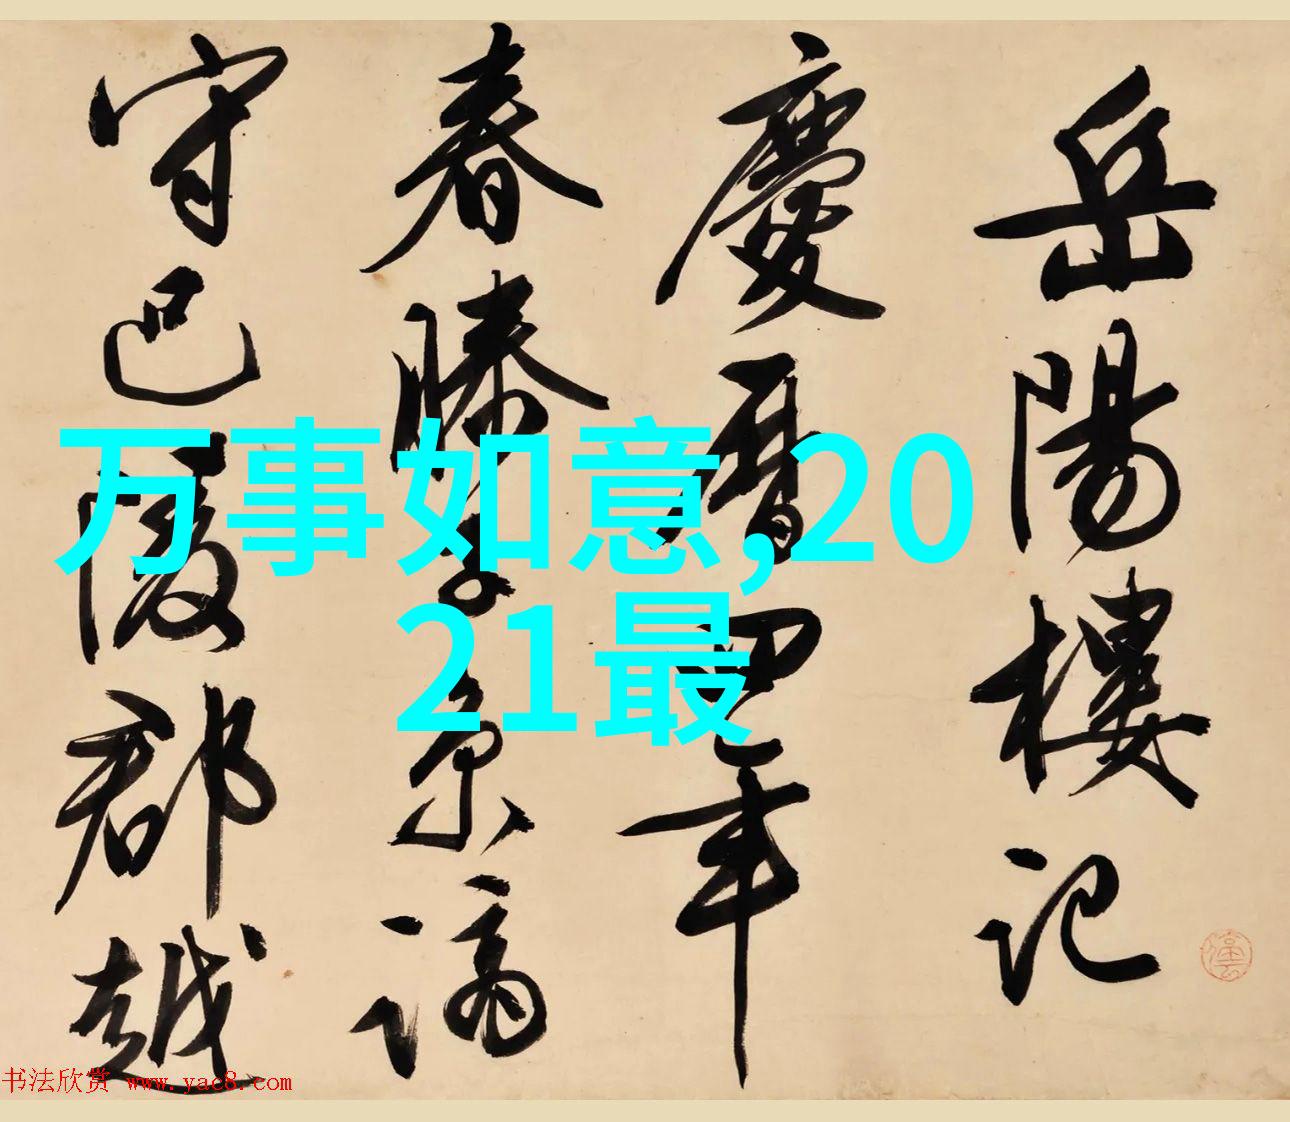 岳陽樓記
慶曆四年
春滕子京謫
守巴陵郡越
万事如意,20
21最
书法欣赏 www.yac8.com